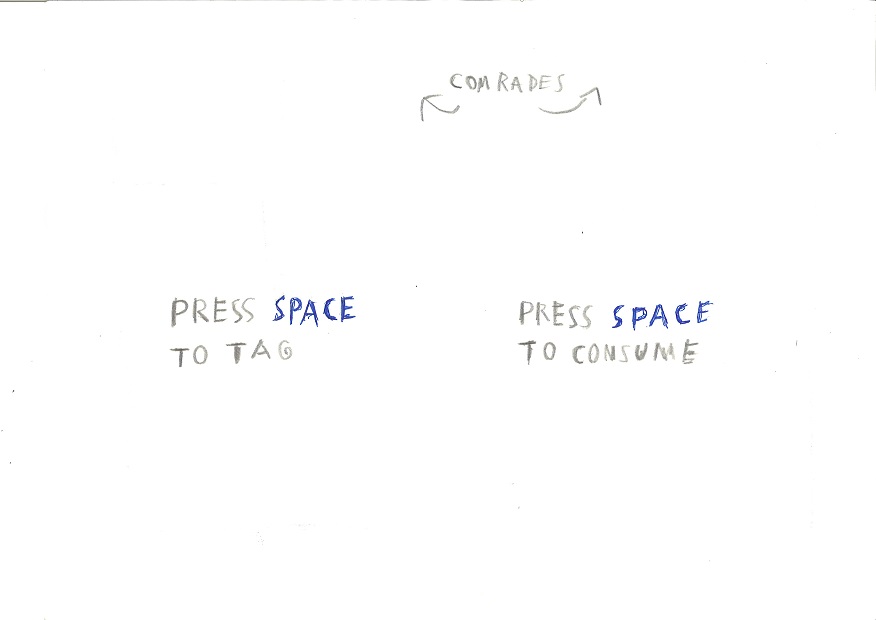 COMRADES
PRESS SPACE
TO TAG
PRESS SPACE
TO CONSUME